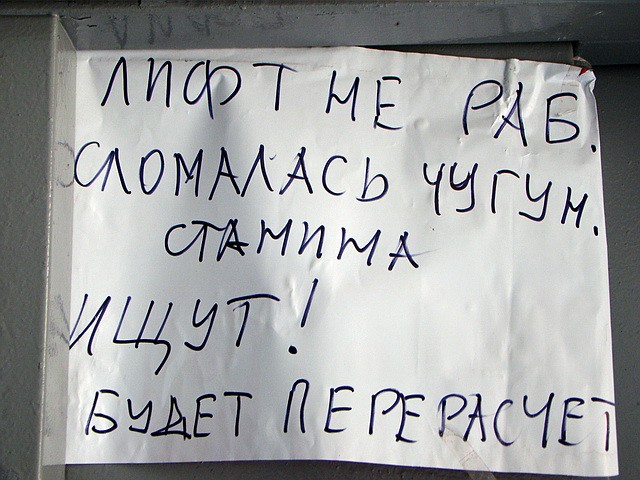 ЛИФТ НЕ РАБ.
СЛОМАЛАСЬ ЧУГУН.
СТАНИНА
ИЩУТ!
БУДЕТ ПЕРЕРАСЧЕТ